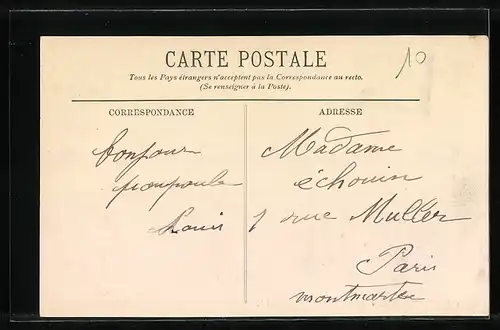 CARTE POSTALE
10
Tous les Pays étrangers n'acceptent pas la Correspondance au recto.
(Se renseigner à la Poste).
CORRESPONDANCE
bonjour
Louis
ADRESSE
Madame
échouin
1 rue Muller
Paris
montmartre